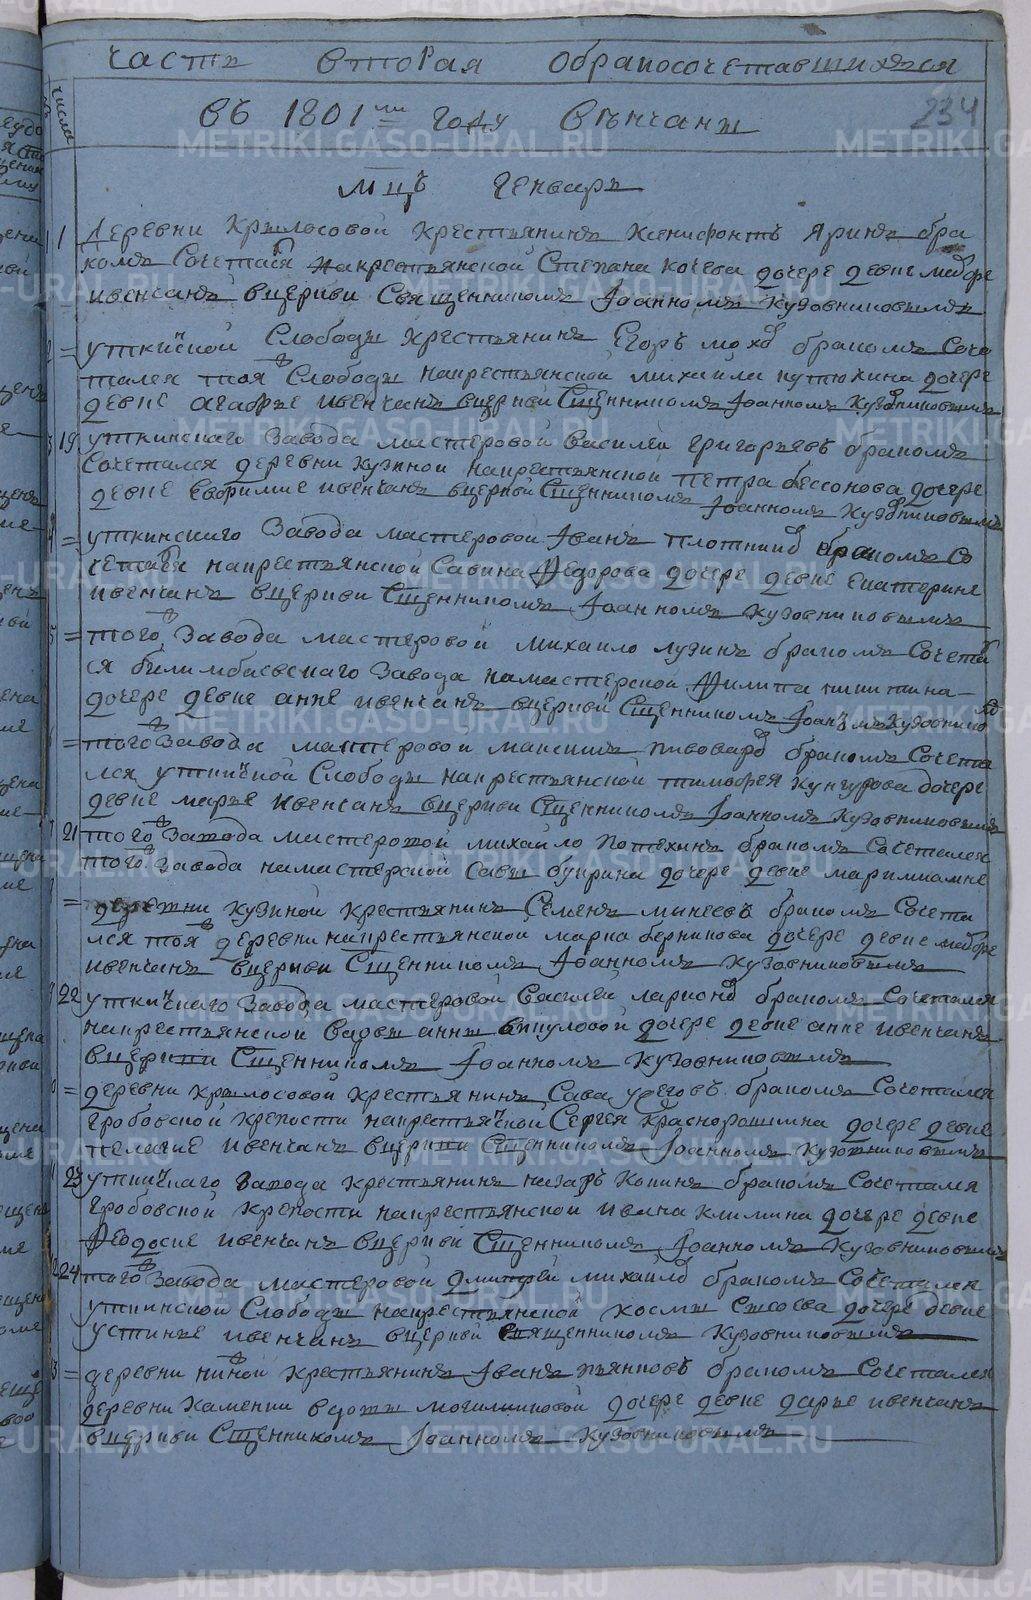 часть вторая обракосочетавшихъся
числа
въ 1801мъ году венчаны
234
Мцъ генварь
1 1 Деревни Крылосовой крестьянинъ Ксенифонтъ Яринъ бра
комъ сочетался накрестьянской Степана Кочева дочере девке
ивенчанъ вцеркви Священникомъ Иоанномъ Кузовниковымъ
2 = уткинской Слободы крестьянинъ Егоръ бракомъ соче
тался тоя Слободы накрестьянской михаила путюхина дочере
девке агафье ивенчанъ вцеркви Сщенникомъ Иоанномъ Кузовниковымъ
3 19 уткинскаго завода мастеровой Василей григорьевъ бракомъ
сочетался деревни Кузиной накрестьянской петра бессонова дочере
девке Евфимие ивенчанъ вцеркви Сщенникомъ Иоанномъ Кузовниковымъ
4 = уткинскаго завода мастеровой Иванъ плотников браком со
четался накрестьянской Савина Федорова дочере девке Екатерине
ивенчанъ вцеркви Сщенникомъ Иоанномъ Кузовниковымъ
5 = того завода мастеровой михайло лузинъ бракомъ сочетал
ся билимбаевскаго завода намастерской Филипа шитина
дочере девке анне ивенчанъ вцеркви Сщенникомъ Иоанъмъ Кузовников
6 = того завода мастеровой максимъ пивовар браком сочета
лся уткинской Слободы накрестьянской тимофея Кунгурова дочере
девке марье ивенчанъ вцеркви Сщенникомъ Иоанномъ Кузовниковымъ
7 21 того завода мастеровой михайло Потехинъ бракомъ сочетался
того завода намастерской Савы буприна дочере девке маримиамне
= деревни Кузиной крестьянинъ Семенъ минеевъ бракомъ сочета
лся тоя деревни накрестьянской марка берникова дочере девке
ивенчанъ вцеркви Сщенникомъ Иоанномъ Кузовниковымъ
9 22 уткинскаго завода мастеровой Василей ларионов бракомъ сочетался
накрестьянской вдовы анны дочере девке анне ивенчанъ
вцеркви Сщенникомъ Иоанномъ Кузовниковымъ
= деревни Крылосовой крестьянинъ Сава браком сочетался
Гробовской крепости накрестьянской Сергея дочере девке
пелагие ивенчанъ вцеркви Сщенникомъ Иоанномъ Кузовниковымъ
23 уткинскаго завода крестьянинъ назаръ Конинъ бракомъ сочетался
Гробовской крепости накрестьянской ивана климина дочере девке
Феодосие ивенчанъ вцеркви Сщенникомъ Иоанномъ Кузовниковымъ
24 того завода мастеровой дмитрей михайлов бракомъ сочетался
уткинской Слободы накрестьянской Космы дочере девке
устинье ивенчанъ вцеркви священникомъ Кузовниковымъ
3 = деревни крестьянинъ Иванъ пьянковъ бракомъ сочетался
деревни Каменки вдовы могильниковой дочере девке дарье ивенчанъ
вцеркви Сщенникомъ Иоанномъ Кузовниковымъ
METRIKI.GASO-URAL.RU